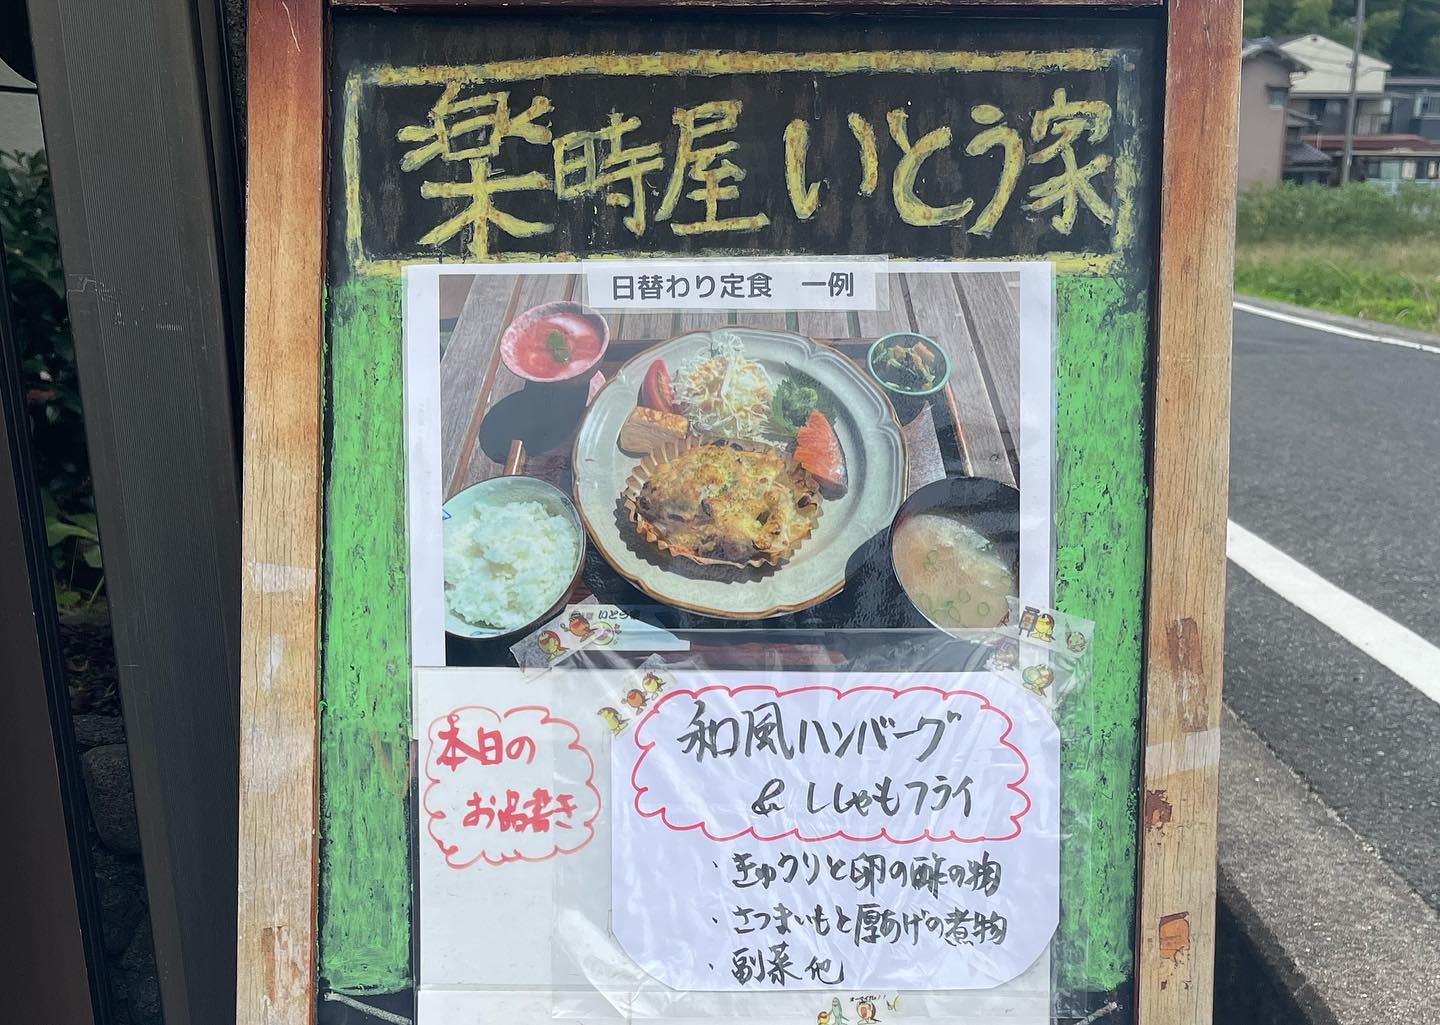 楽時屋 いとう家
日替わり定食 一例
いとう家
本日の
お品書き
和風ハンバーグ
& ししゃもフライ
・きゅうりと卵の酢の物
・さつまいもと厚あげの煮物
・副菜他